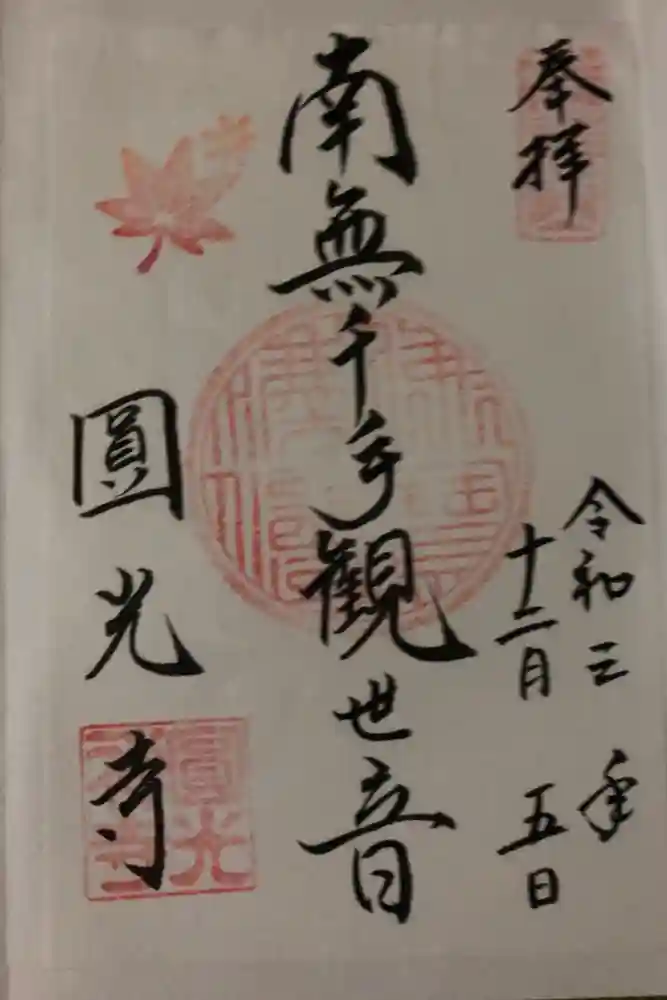 奉拝
令和三年
十二月五日
南無千手観世音
圓光寺